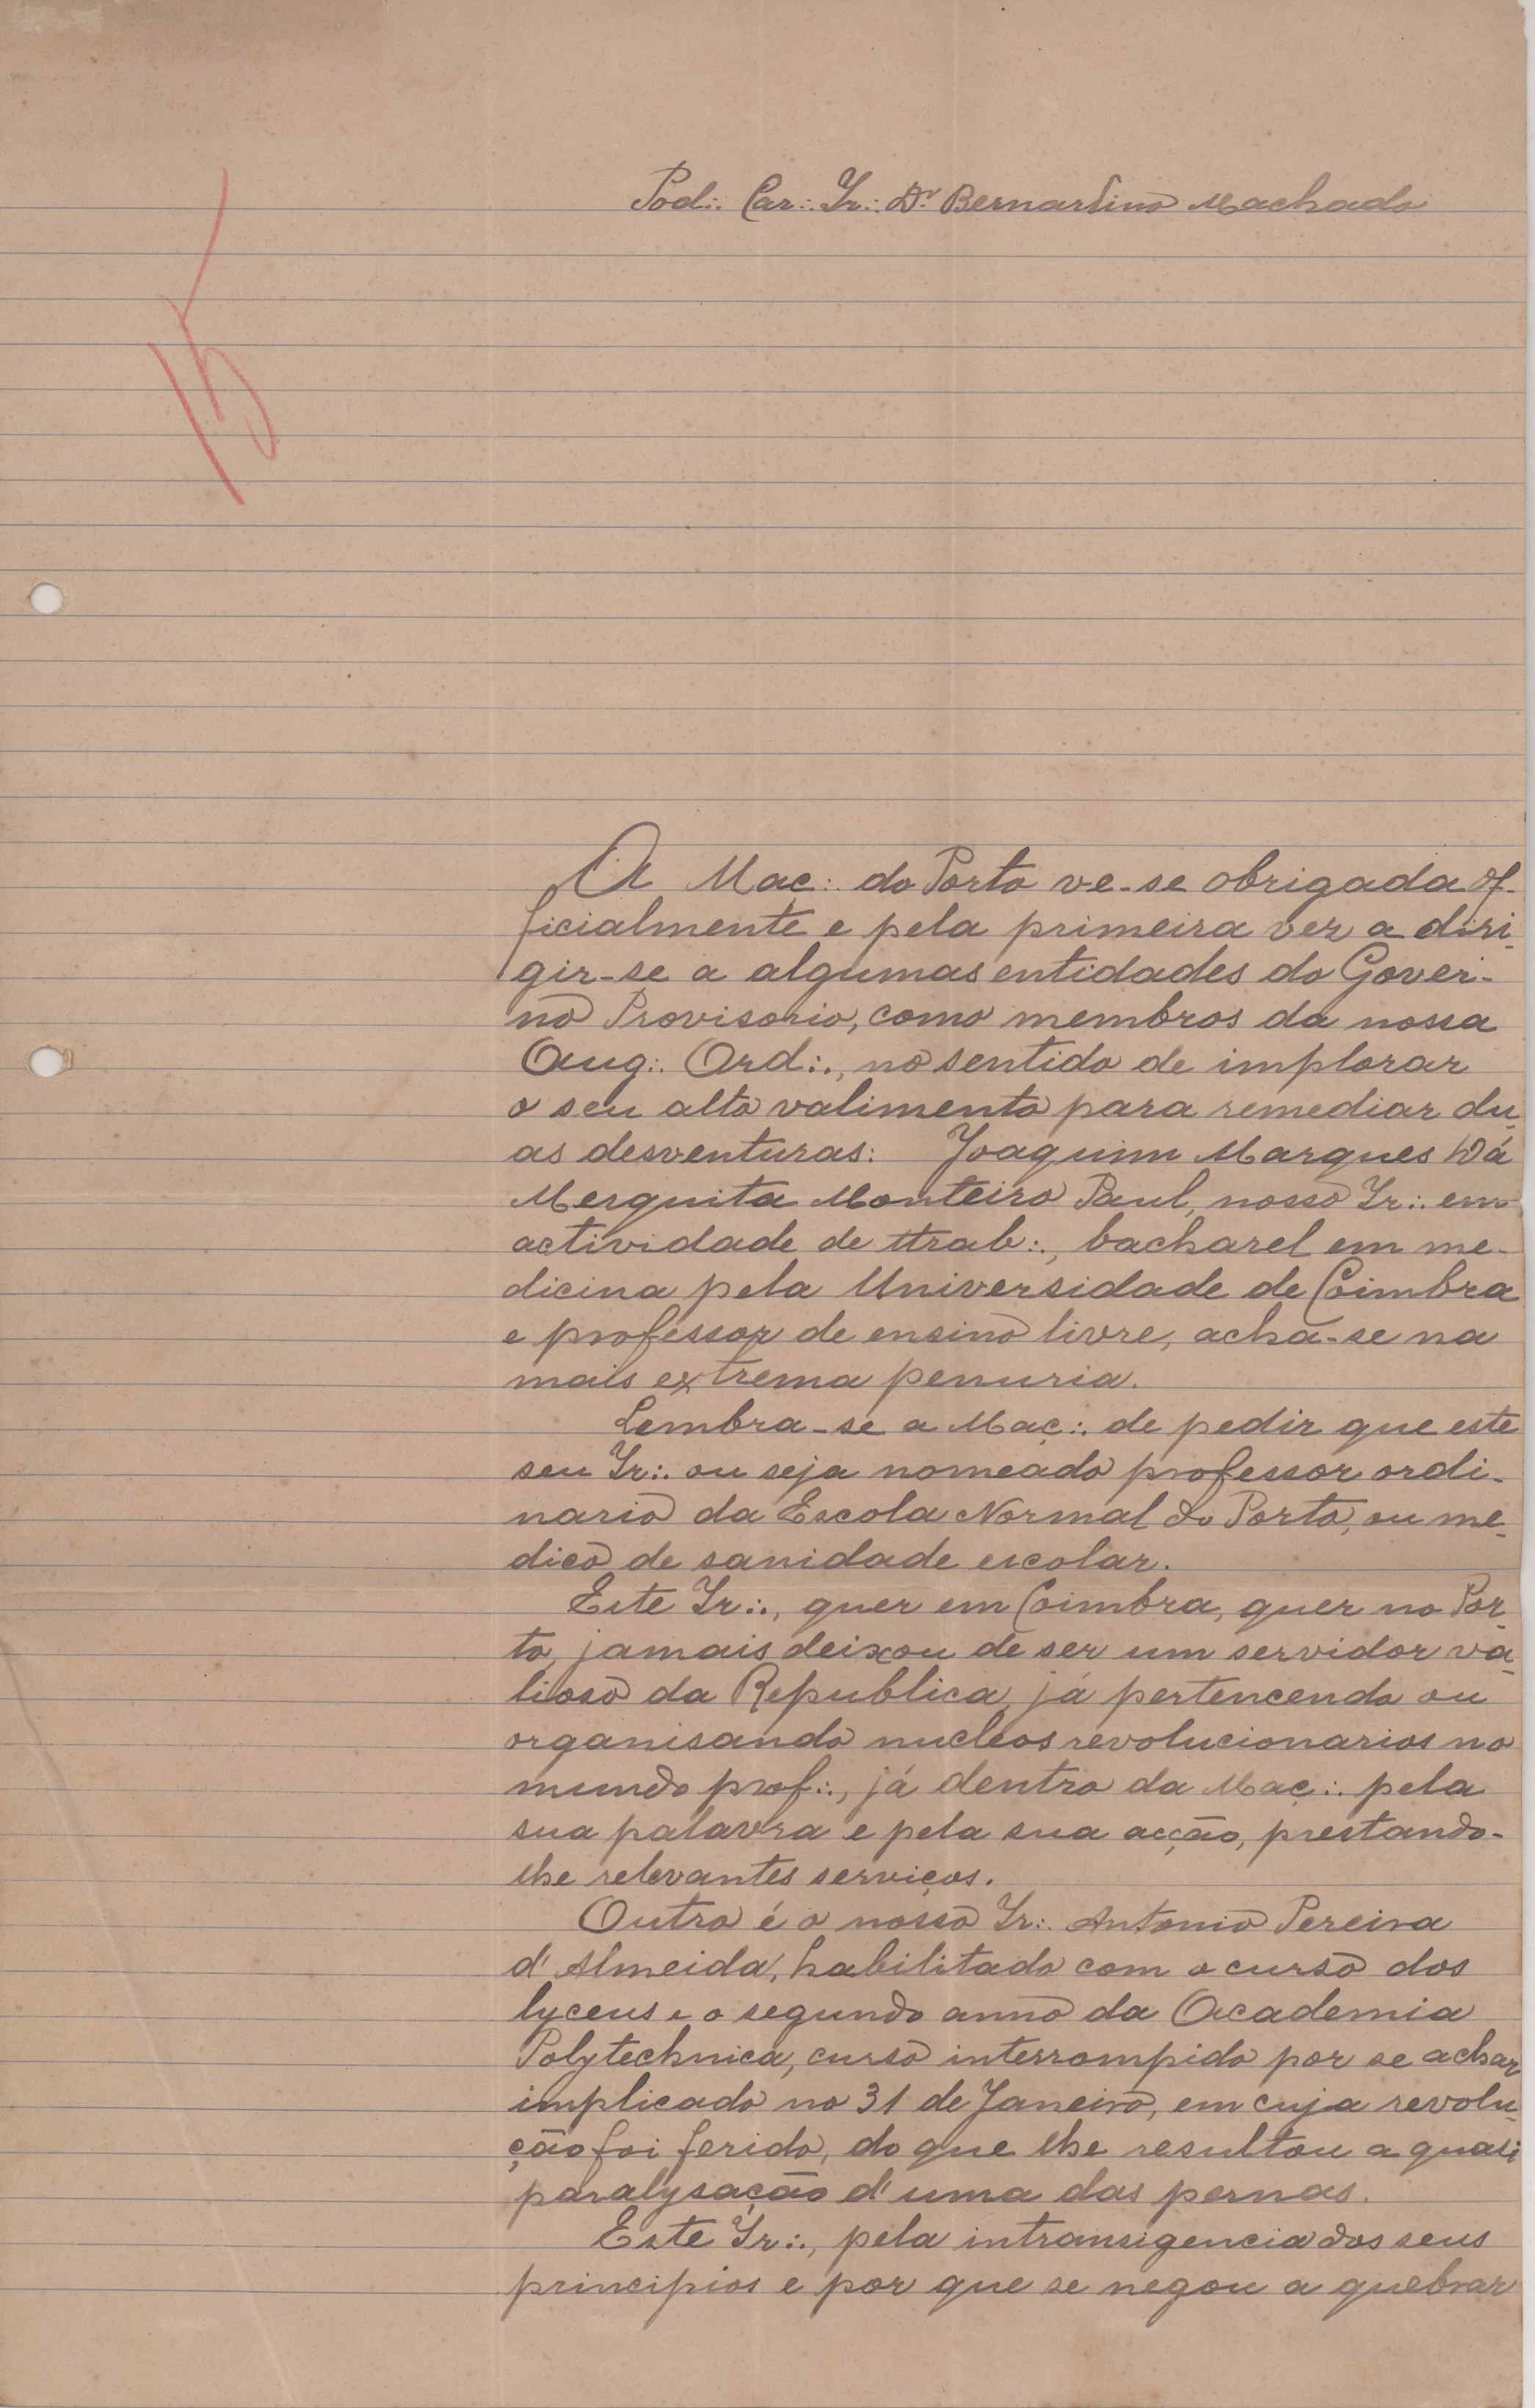 15
Pod∴ Car∴ Ir∴ Dr. Bernardino Machado
A Maç∴ do Porto ve-se obrigada of-
ficialmente e pela primeira vez a diri-
gir-se a algumas entidades do Gover-
no Provisorio, como membros da nossa
Aug∴ Ord∴, no sentido de implorar
o seu alto valimento para remediar du-
as desventuras: Joaquim Marques Dá
Mesquita Monteiro Paul, nosso Ir∴ em
actividade de ttrab∴, bacharel em me-
dicina pela Universidade de Coimbra
e professor de ensino livre, acha-se na
mais extrema penuria.
Lembra-se a Maç∴ de pedir que este
seu Ir∴ ou seja nomeado professor ordi-
nario da Escola Normal do Porto, ou me-
dico de sanidade escolar.
Este Ir∴, quer em Coimbra, quer no Por-
to, jamais deixou de ser um servidor va-
lioso da Republica, já pertencendo ou
organisando nucleos revolucionarios no
mundo prof∴, já dentro da Maç∴ pela
sua palavra e pela sua acção, prestando-
lhe relevantes serviços.
Outro é o nosso Ir∴ Antonio Pereira
d'Almeida, habilitado com o curso dos
lyceus e o segundo anno da Academia
Polytechnica, curso interrompido por se achar
implicado no 31 de Janeiro, em cuja revolu-
ção foi ferido, do que lhe resultou a quasi
paralysação d'uma das pernas.
Este Ir∴, pela intransigencia dos seus
principios e por que se negou a quebrar